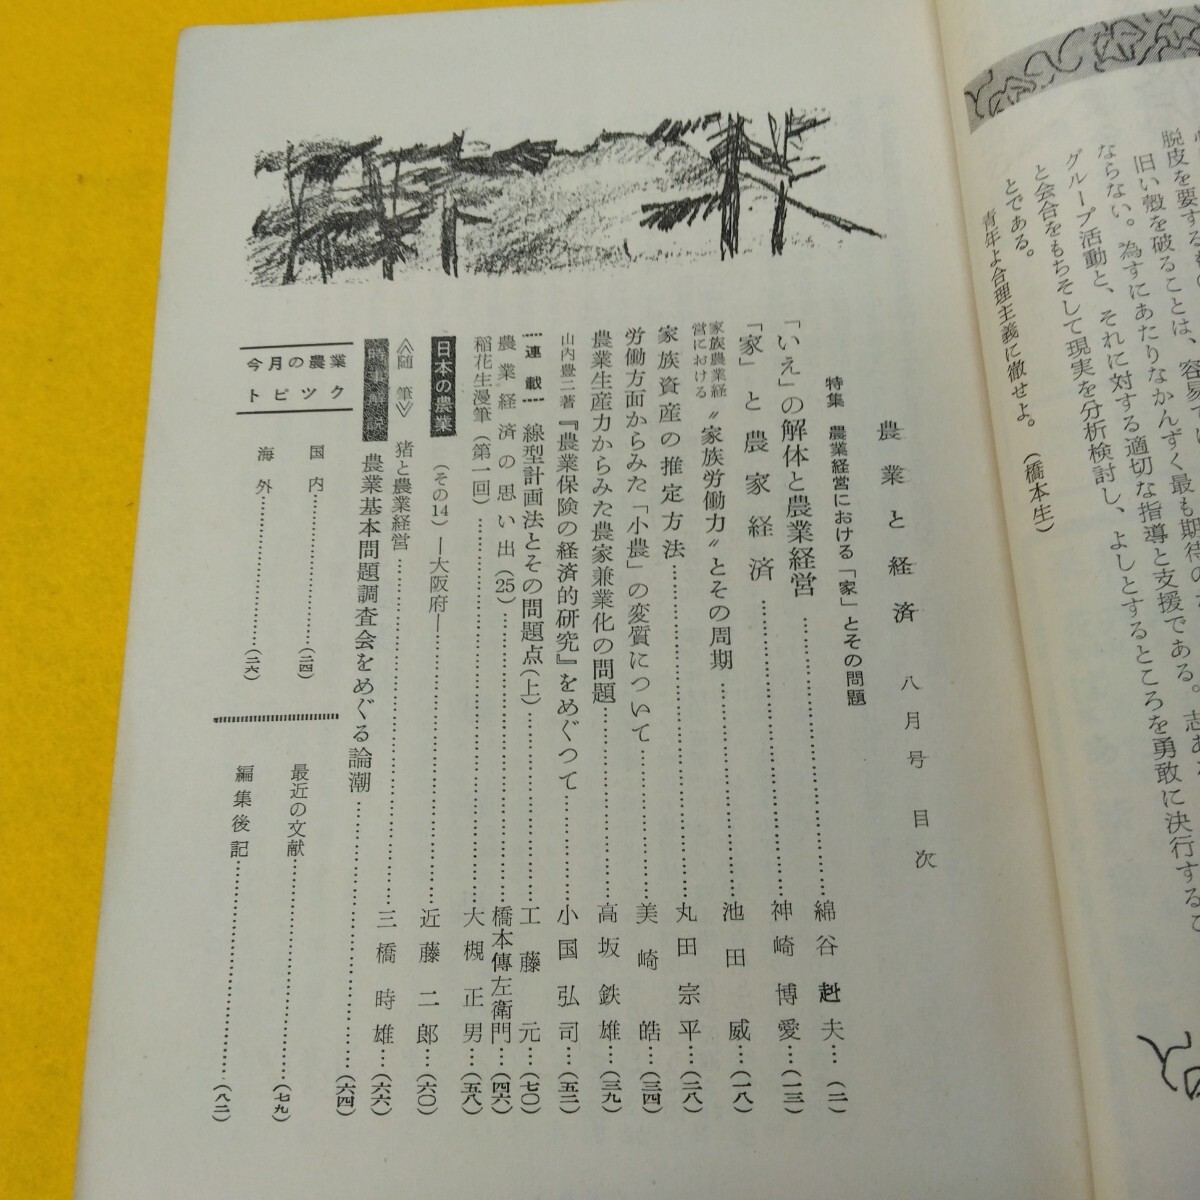 脱皮を要する
旧い殻を破ることは、容易
ならない。為すにあたりなかんずく最も期待の
グループ活動と、それに対する適切な指導と支援である。志あ
と会合をもちそして現実を分析検討し、よしとするところを勇敢に決行するこ
とである。
青年よ合理主義に徹せよ。
(橋本生)
農業と経済 八月号 目次
特集 農業経営における「家」とその問題
「いえ」の解体と農業経営……綿谷赳夫…(二)
「家」と農家経済……神崎博愛…(一三)
家族農業経営における〝家族労働力〟とその周期……池田威…(一八)
家族資産の推定方法……丸田宗平…(二八)
労働方面からみた「小農」の変質について……美崎皓…(三四)
農業生産力からみた農家兼業化の問題……高坂鉄雄…(三九)
山内豊二著『農業保険の経済的研究』をめぐつて……小国弘司…(五二)
連載 線型計画法とその問題点(上)……工藤元…(七〇)
農業経済の思い出(25)……橋本傳左衛門…(四六)
稲花生漫筆(第一回)……大槻正男…(五八)
日本の農業 (その14)―大阪府―……近藤二郎…(六〇)
≪随筆≫ 猪と農業経営……三橋時雄…(六六)
時事解説 農業基本問題調査会をめぐる論潮……(六四)
今月の農業
トピツク
国内……(二四)
海外……(二六)
最近の文献……(七九)
編集後記……(八二)